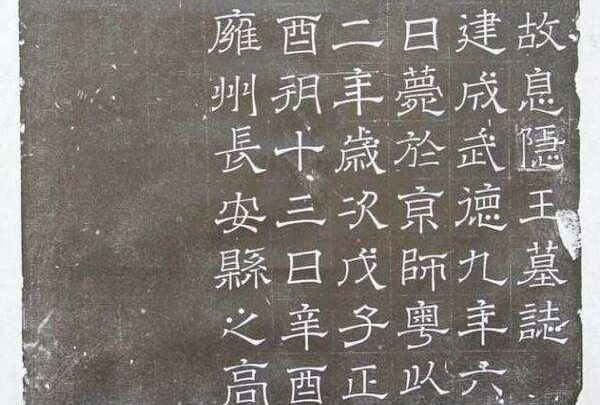 故息隱王墓誌
建成武德九年六
日薨於京師粵以
二年歲次戊子正
酉朔十三日辛酉
雍州長安縣之高